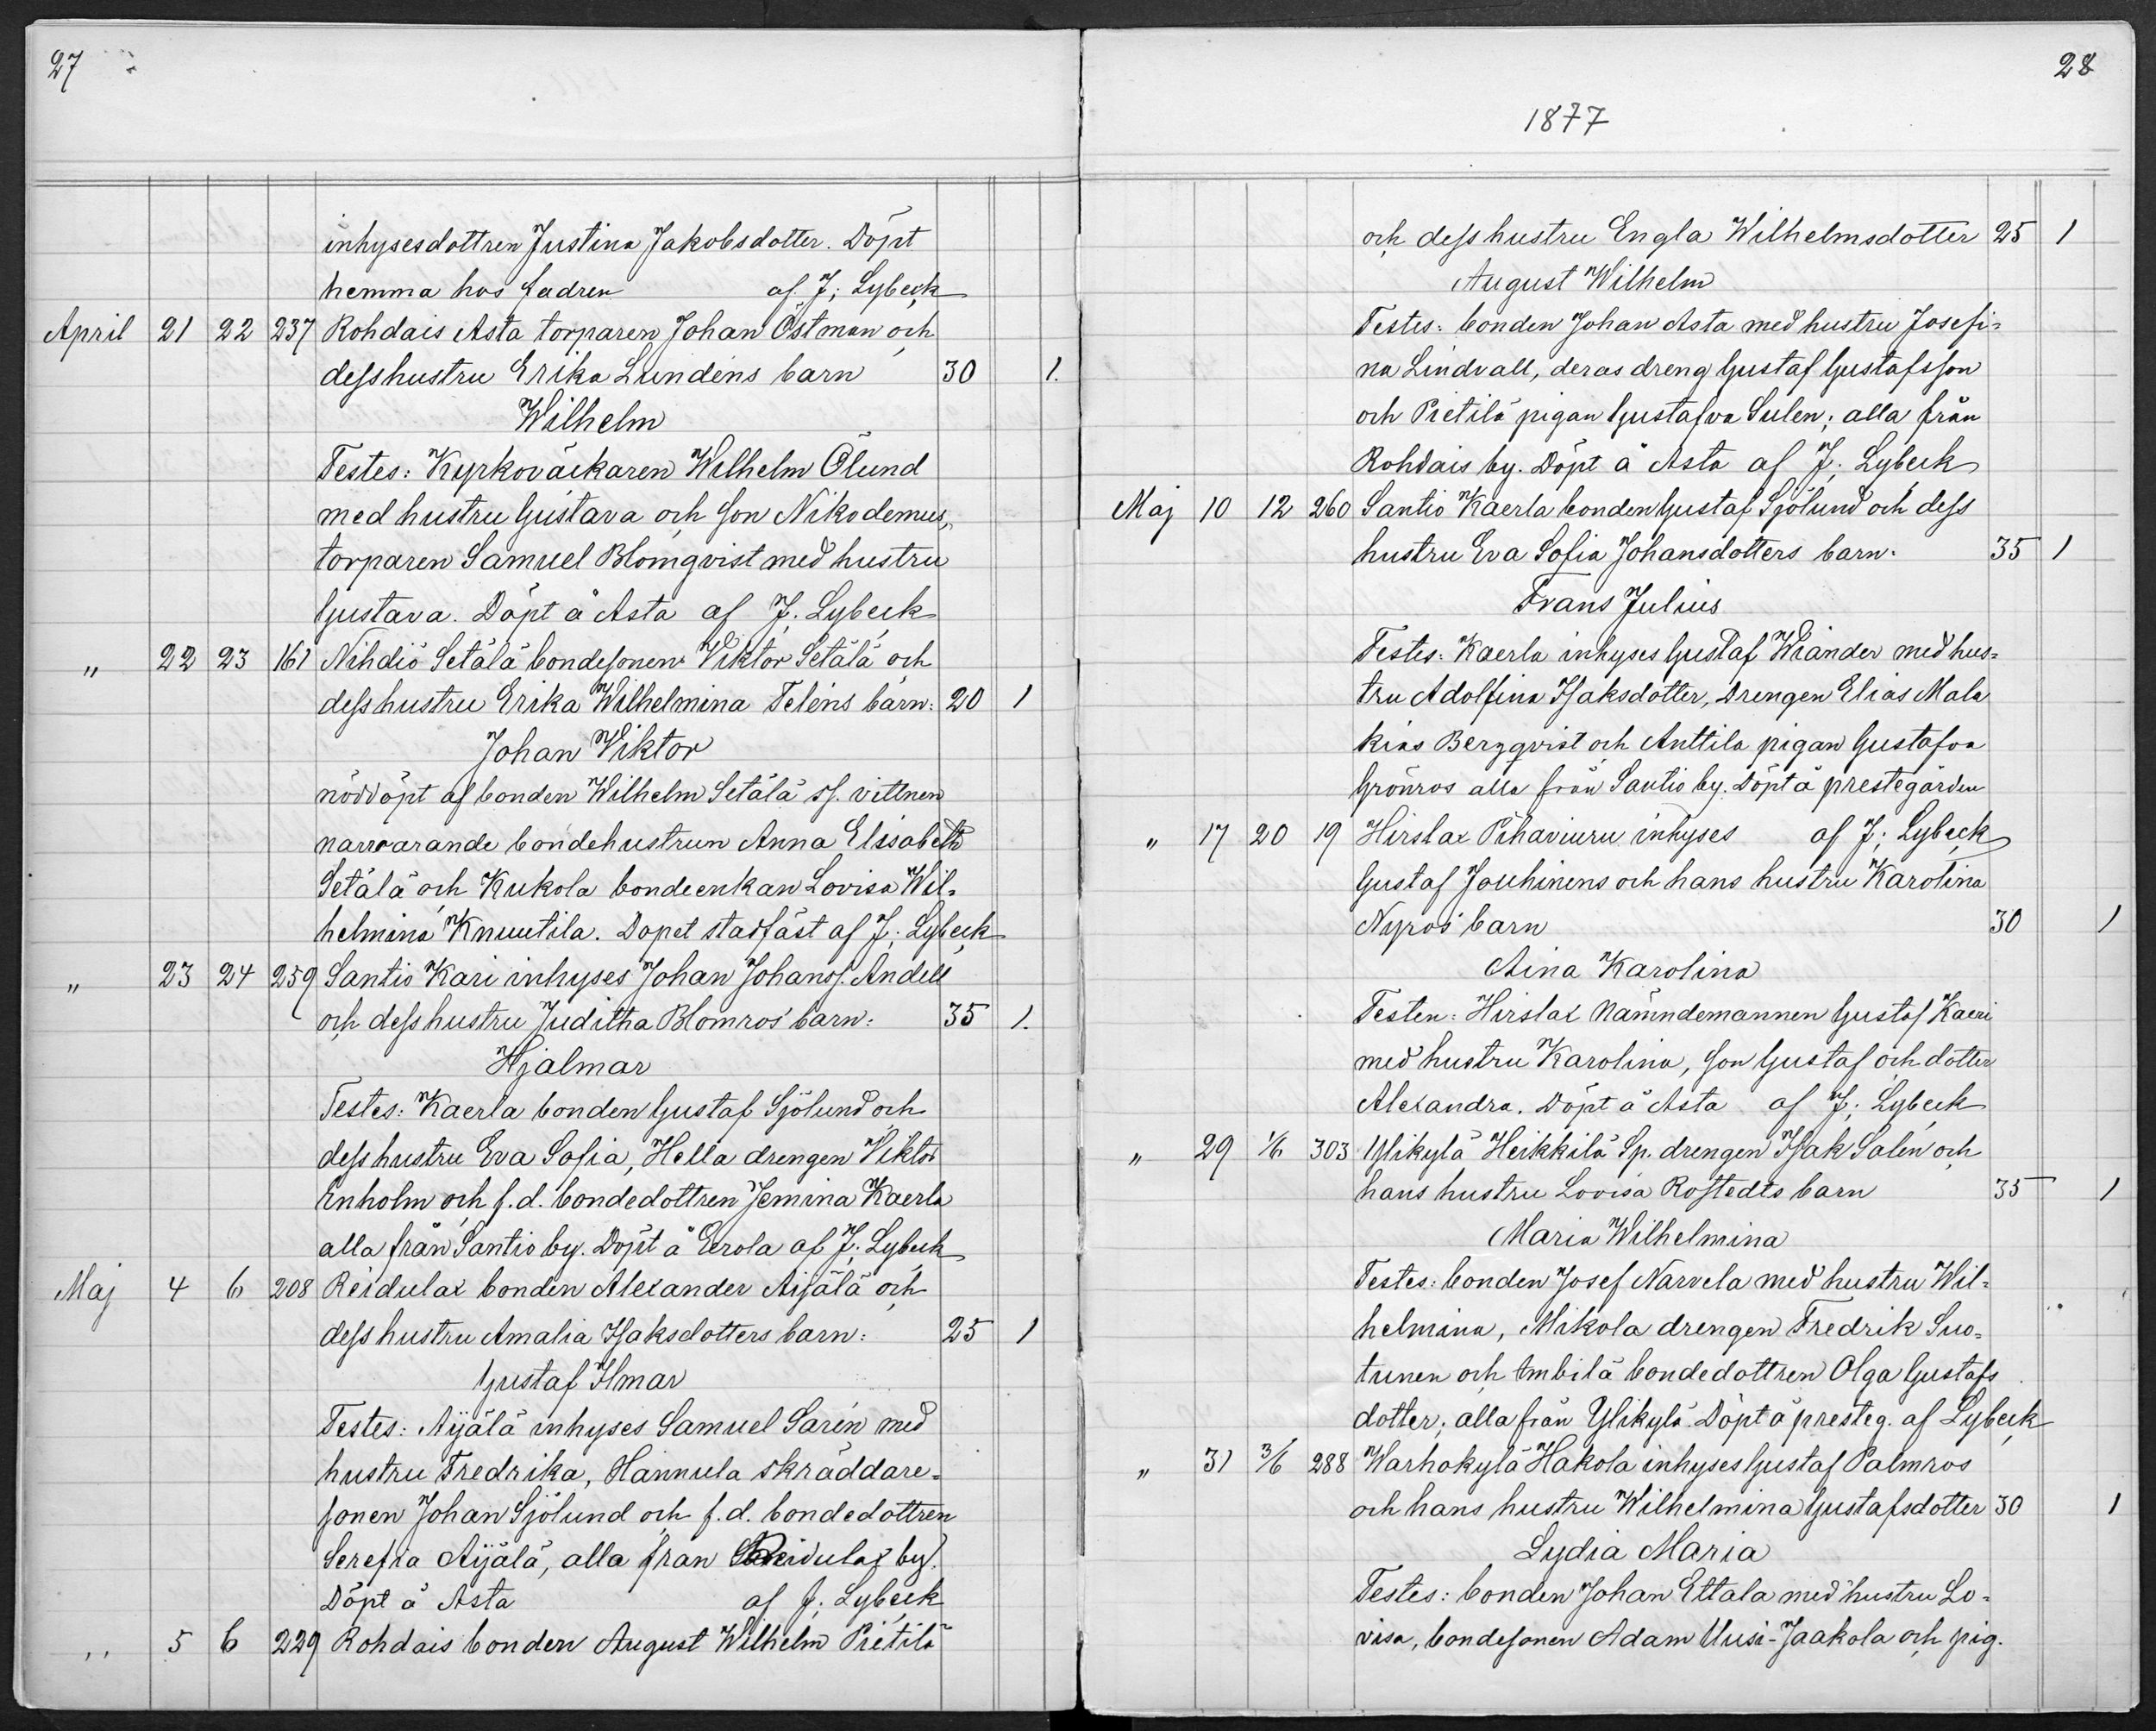 27
inhysesdottren Justina Jakobsdotter. Döpt
hemma hos fadren af J. Lybeck
April 21 22 237 Rohdais Asta torparen Johan Östman och
dess hustru Erika Lundéns barn 30 1.
Wilhelm
Testes: Kyrkoväckaren Wilhelm Ölund
med hustru Gustava och son Nikodemus,
torparen Samuel Blomqvist med hustru
Gustava. Döpt å Asta af J. Lybeck
" 22 23 161 Nihdiö Setälä bondesonen Viktor Setälä och
dess hustru Erika Wilhelmina Teléns barn: 20 1
Johan Viktor
nöddöpt af bonden Wilhelm Setälä sf. vittnen
narvarande bondehustrun Anna Elisabeth
Setälä och Kukola bondeenkan Lovisa Wil=
helmina Knuutila. Dopet stadfäst af J. Lybeck
" 23 24 259 Santio Kari inhyses Johan Johanss. Andell
och dess hustru Juditha Blomros' barn: 35 1.
Hjalmar
Testes: Kaerla bonden Gustaf Sjölund och
dess hustru Eva Sofia, Hella drengen Viktor
Enholm och f.d. bondedottren Jemina Kaerla
alla från Santio by. Döpt å Eerola af J. Lybeck
Maj 4 6 208 Reidulax bonden Alexander Aijälä och
dess hustru Amalia Isaksdotters barn: 25 1
Gustaf Ilmar
Testes: Aijälä inhyses Samuel Sarén med
hustru Fredrika, Hannula skräddare=
sonen Johan Sjölund och f.d. bondedottren
Serefia Aijälä, alla fran Reidulax by.
Döpt å Asta af J. Lybeck
,, 5 6 229 Rohdais bonden August Wilhelm Pietilä
28
1877
och dess hustru Engla Wilhelmsdotter 25 1
August Wilhelm
Testes: bonden Johan Asta med hustru Josefi=
na Lindvall, deras dreng Gustaf Gustafsson
och Pietilä pigan Gustafva Sulen; alla från
Rohdais by. Döpt å Asta af J. Lybeck
Maj 10 12 260 Santio Kaerla bonden Gustaf Sjölund och dess
hustru Eva Sofia Johansdotters barn. 35 1
Frans Julius
Testes: Kaerla inhyses Gustaf Wiander med hus=
tru Adolfina Isaksdotter, Drengen Elias Mala
kias Bergqvist och Anttila pigan Gustafva
Grönros alla från Santio by. Döpt å prestegården
" 17 20 19 Hirslax Pihaviuru inhyses af J. Lybeck
Gustaf Jouhinens och hans hustru Karolina
Nyros' barn 30 1
Aina Karolina
Testen: Hirslax Nämndemannen Gustaf Kaeri
med hustru Karolina, son Gustaf och dotter
Alexandra. Döpt å Asta af J. Lybeck
" 29 1/6 303 Ylikylä Heikkilä Sp. drengen Isak Salén och
hans hustru Lovisa Rostedts barn 35 1
Maria Wilhelmina
Testes: bonden Josef Narvela med hustru Wil=
helmina, Mikola drengen Fredrik Suo=
tunen och Imbilä bondedottren Olga Gustafs
dotter; alla från Ylikylä. Döpt å presteg. af Lybeck
" 31 3/6 288 Warhokylä Hakola inhyses Gustaf Palmros
och hans hustru Wilhelmina Gustafsdotter 30 1
Lydia Maria
Testes: bonden Johan Ettala med hustru Lo=
visa, bondesonen Adam Uusi-Jaakola och pig.